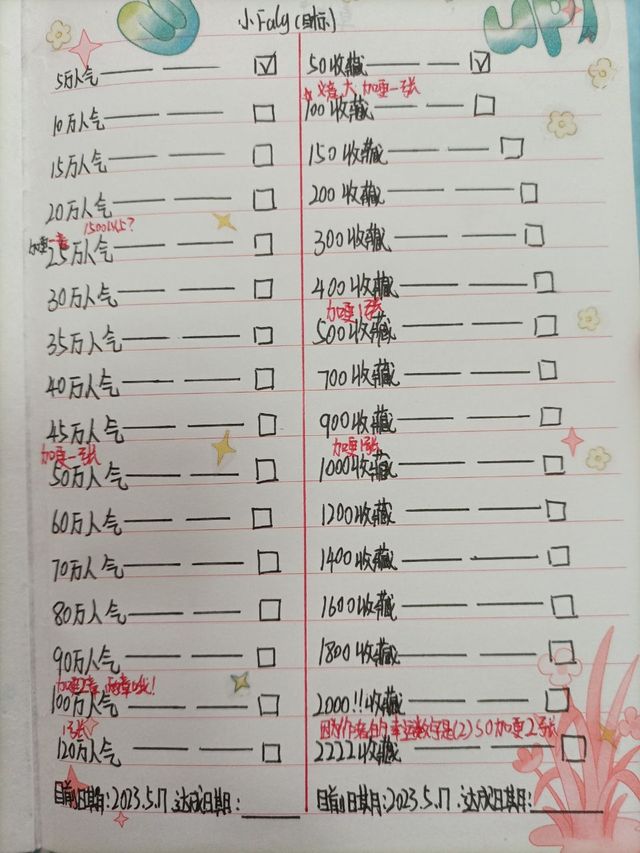 小Faly(目标)
5万人气
10万人气
15万人气
20万人气
1500以上?
加更一章
25万人气
30万人气
35万人气
40万人气
45万人气
加更一张
50万人气
60万人气
70万人气
80万人气
90万人气
加更2章
100万人气
1张
120万人气
目前日期:2023.5.17 达成日期:
UP!
50收藏
大 加更一张
100收藏
150收藏
200收藏
300收藏
400收藏
加更1张
500收藏
700收藏
900收藏
加更1张
1000收藏
1200收藏
1400收藏
1600收藏
1800收藏
2000!!收藏
因为作者的幸运数字是(2)SO加更2张
2222收藏
目前日期:2023.5.17.达成日期: